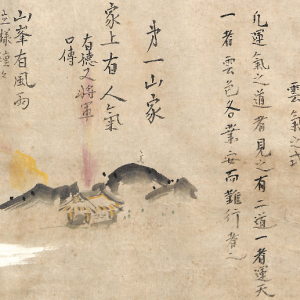 雲氣之
凡運氣之道者見之有二道一者運天
一者雲色各業安而難行者之
第一山家
家上有人氣
有德又將軍
口傳
山峯有風雨